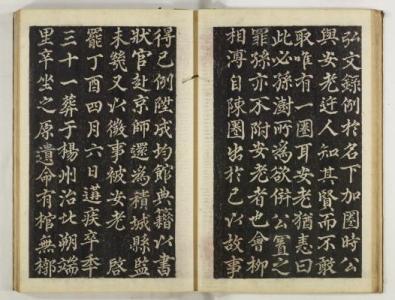 弘文錄例於名下加圈時公
與安老迕人知其賢而不敢
取唯有一圈耳安老猶恚曰
此必孫澍所爲欲倂公寘之
罪孫亦不附安老者也會柳
相溥自陳圈出於己以故事
得已例陞成均館典籍以書
狀官赴京師還爲積城縣監
未幾又以微事被安老 啓
罷丁酉四月六日遘疾卒年
三十一葬于楊州治北朔端
里辛坐之原遺命有棺無槨